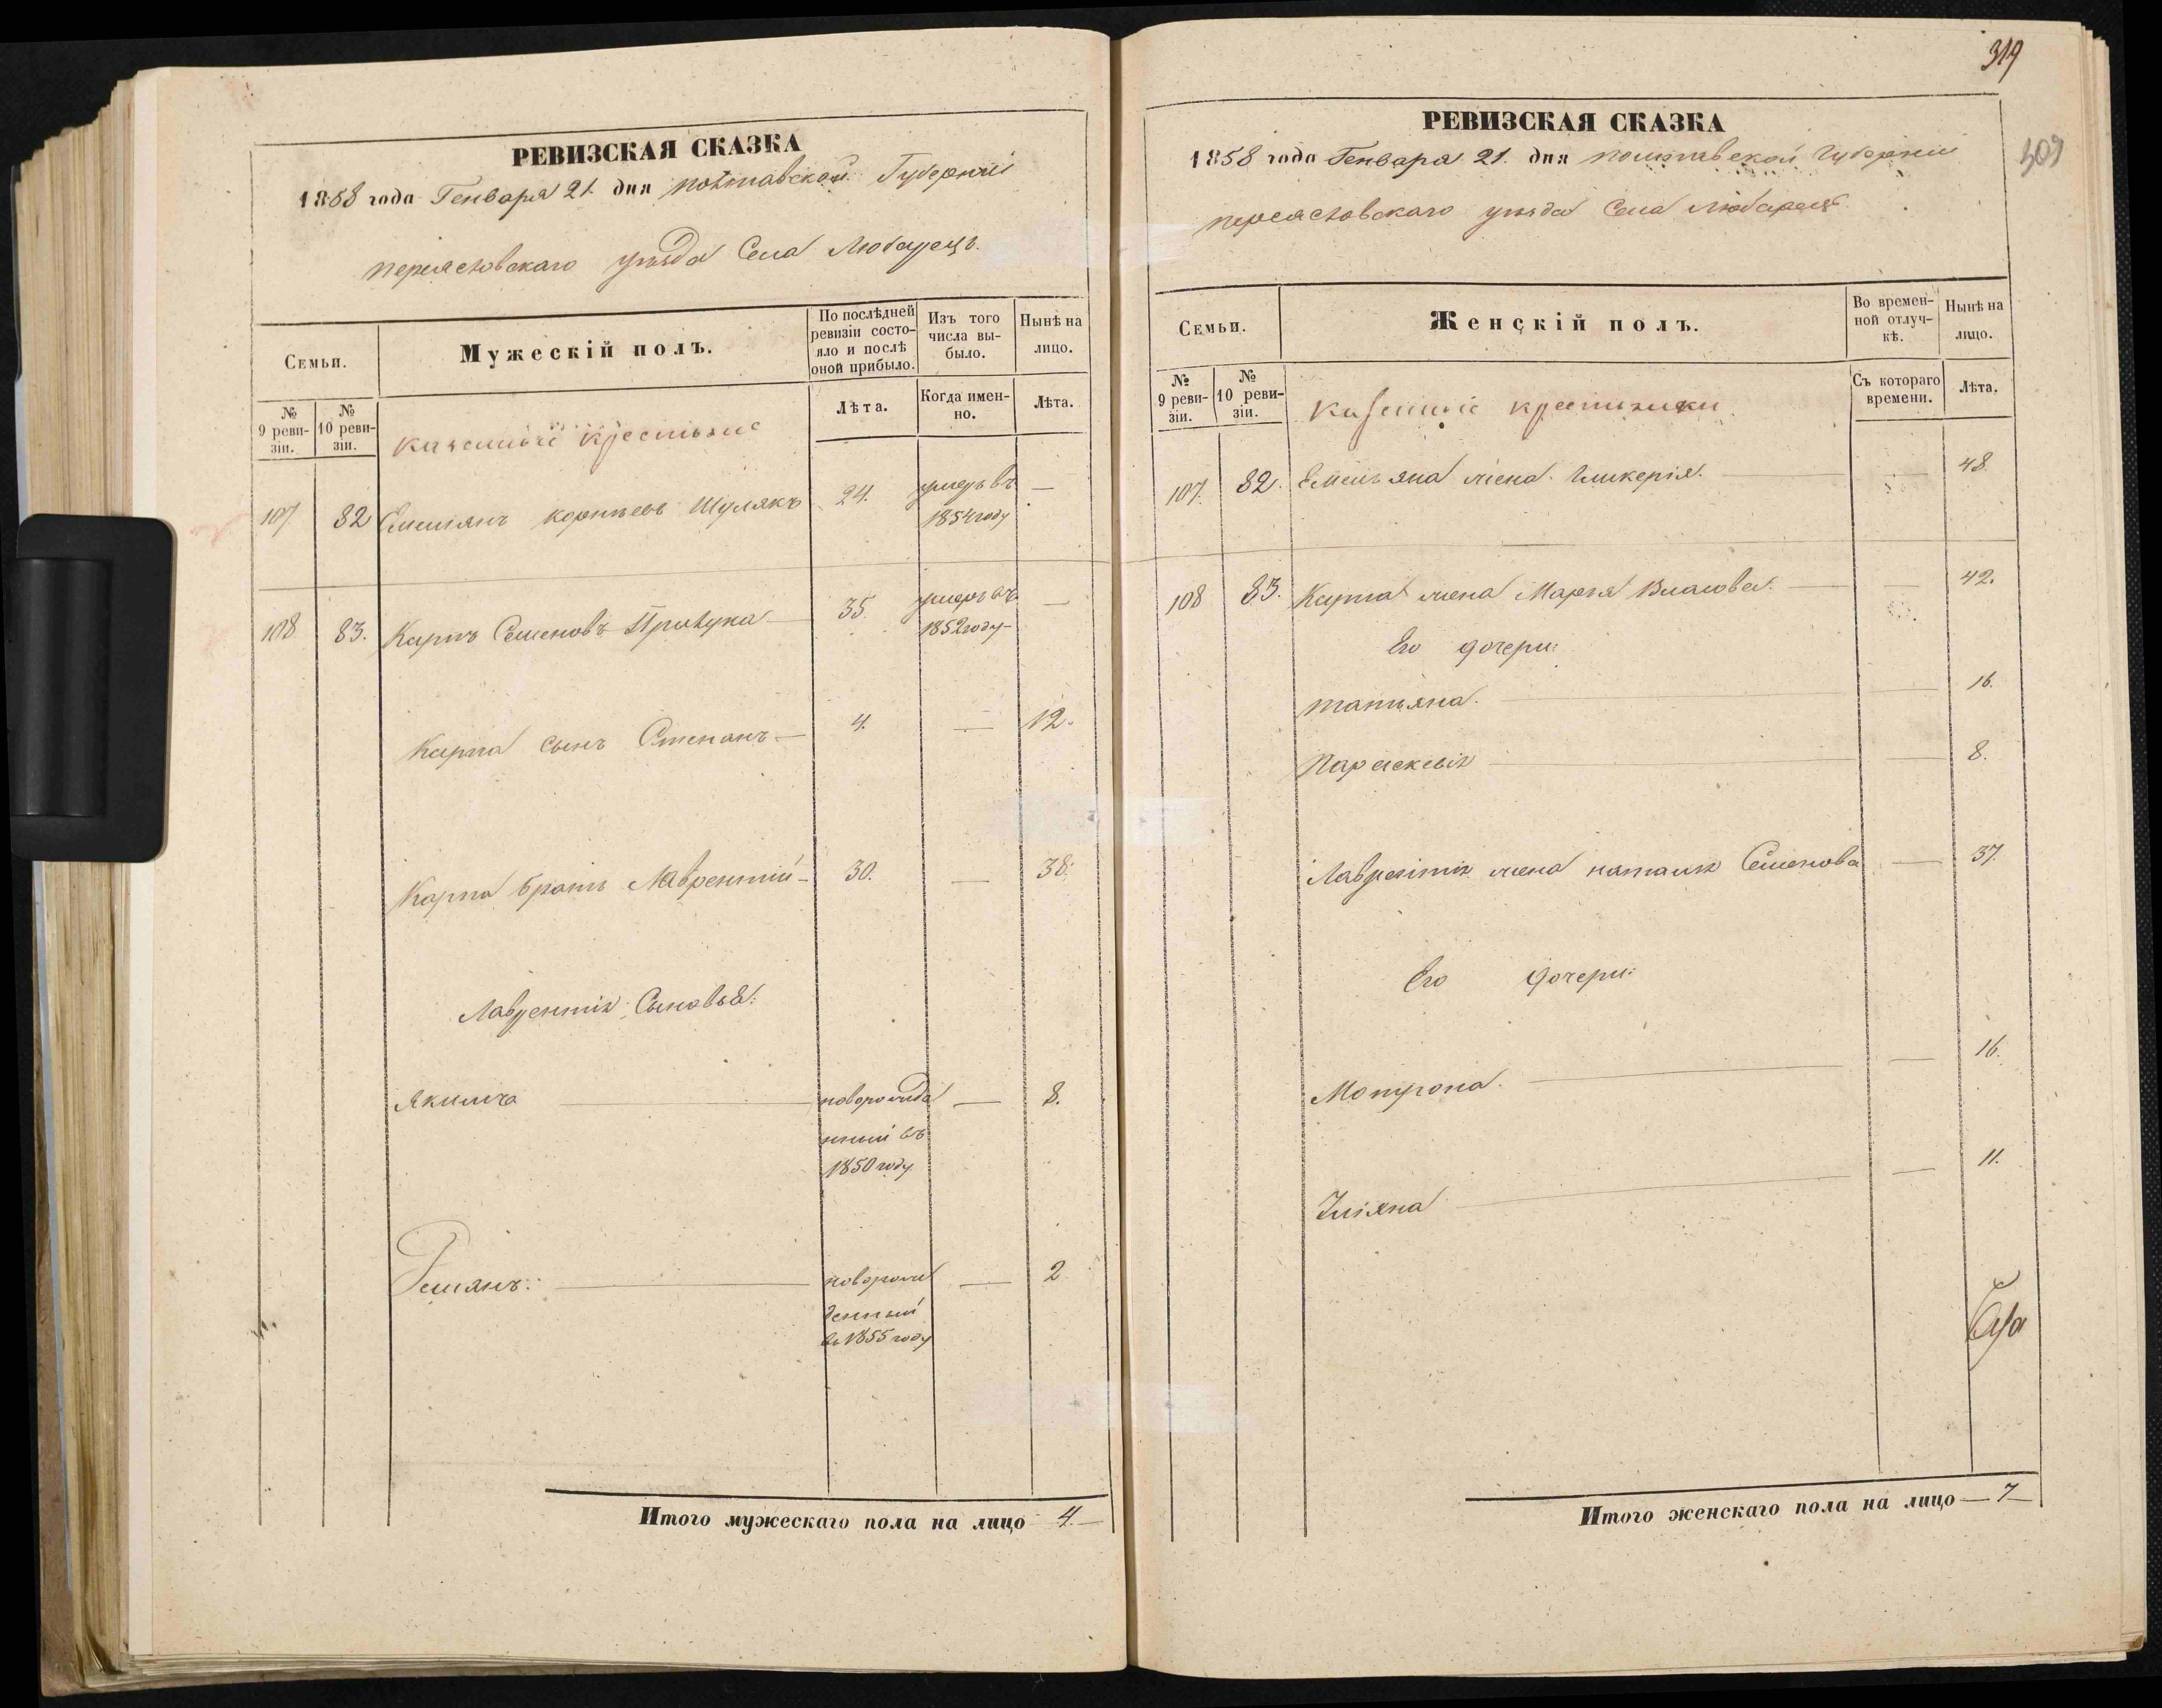 РЕВИЗСКАЯ СКАЗКА
1858 года Генваря 21. дня полтавской Губерніи
переяславскаго уѣзда Села Любарецъ.
Семьи.
Мужескій полъ.
По послѣдней ревизіи состо-
яло и послѣ
оной прибыло.
Изъ того
числа вы-
было.
Нынѣ на
лицо.
№
9 реви-
зіи.
№
10 реви-
зіи.
казенные крестьяне
Лѣта.
Когда имен-
но.
Лѣта.
107 82 Емелянъ корнѣевъ Шулякъ 24. умеръ въ —
1854 году
108 83. Карпъ Семеновъ Притука 35. умеръ въ —
1852 году
Карпа сынъ Степанъ — 4. — 12.
Карпа братъ Лаврентий — 30. — 38.
Лаврентія Сыновья:
Якимъ — новорожде — 8.
нный въ
1850 году
Демянъ: — новорож — 2
денный
въ 1855 году
Итого мужескаго пола на лицо 4.—
319
309
РЕВИЗСКАЯ СКАЗКА
1858 года Генвара 21. дня полтавской Губерніи
переяславскаго уѣзда Села Любарецъ
Семьи.
Женскій полъ.
Во времен-
ной отлуч-
кѣ.
Нынѣ на
лицо.
№
9 реви-
зіи.
№
10 реви-
зіи.
Казенніе крестянки
Съ котораго
времени.
Лѣта.
107. 82. Емельяна жена Гликерія. — — 48.
108 83. Карпа жена Марья Власова. — — 42.
Его дочери:
татьяна. — — 16.
Параскевія — 8.
Лаврентія жена наталія Семенова — 37.
Его дочери:
Мотрона. — — 16.
Уліяна — — 11.
Итого женскаго пола на лицо — 7 —